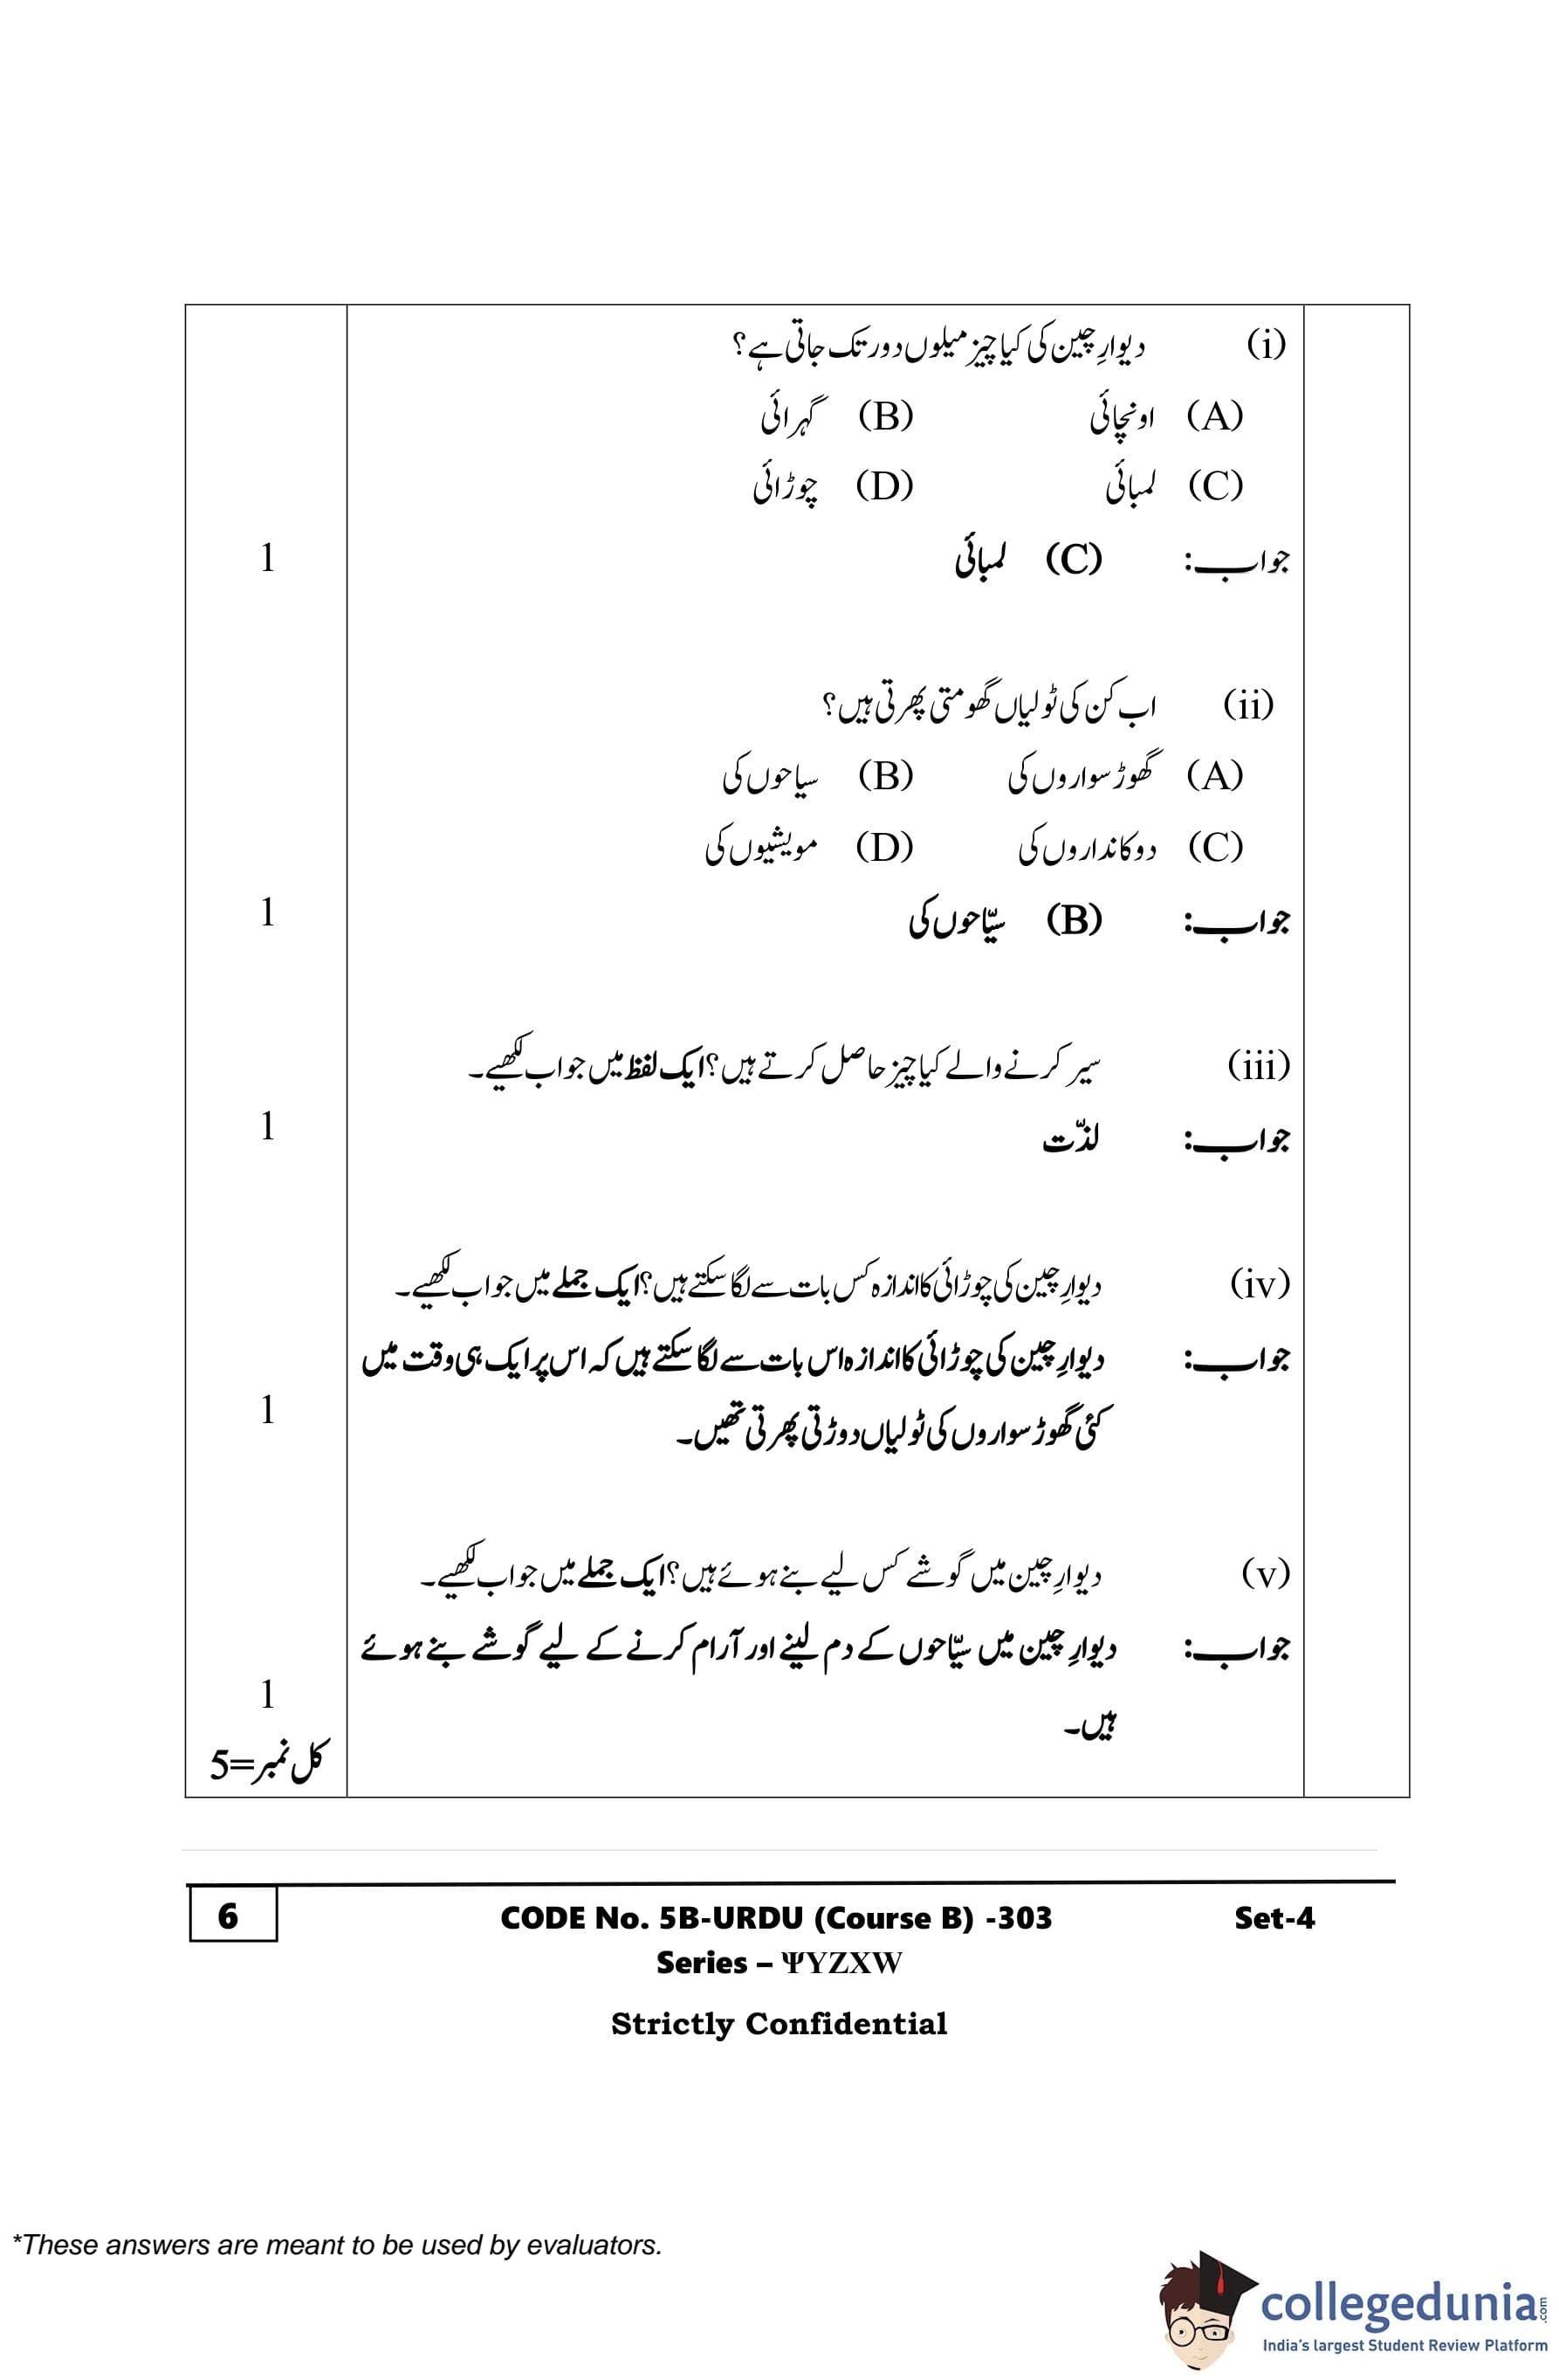 (i) دیوارِ چین کی کیا چیز میلوں دور تک جاتی ہے؟
(A) اونچائی (B) گہرائی
(C) لمبائی (D) چوڑائی
جواب: (C) لمبائی 1
(ii) اب کن کی ٹولیاں گھومتی پھرتی ہیں؟
(A) گھوڑ سواروں کی (B) سیاحوں کی
(C) دوکانداروں کی (D) مویشیوں کی
جواب: (B) سیّاحوں کی 1
(iii) سیر کرنے والے کیا چیز حاصل کرتے ہیں؟ ایک لفظ میں جواب لکھیے۔
جواب: لذّت 1
(iv) دیوارِ چین کی چوڑائی کا اندازہ کس بات سے لگا سکتے ہیں؟ ایک جملے میں جواب لکھیے۔
جواب: دیوارِ چین کی چوڑائی کا اندازہ اس بات سے لگا سکتے ہیں کہ اس پر ایک ہی وقت میں
کئی گھوڑ سواروں کی ٹولیاں دوڑتی پھرتی تھیں۔ 1
(v) دیوارِ چین میں گوشے کس لیے بنے ہوئے ہیں؟ ایک جملے میں جواب لکھیے۔
جواب: دیوارِ چین میں سیّاحوں کے دم لینے اور آرام کرنے کے لیے گوشے بنے ہوئے
ہیں۔ 1
کل نمبر=5
6 CODE No. 5B-URDU (Course B) -303 Set-4
Series – ΨYZXW
Strictly Confidential
*These answers are meant to be used by evaluators.
collegedunia.com
India's largest Student Review Platform